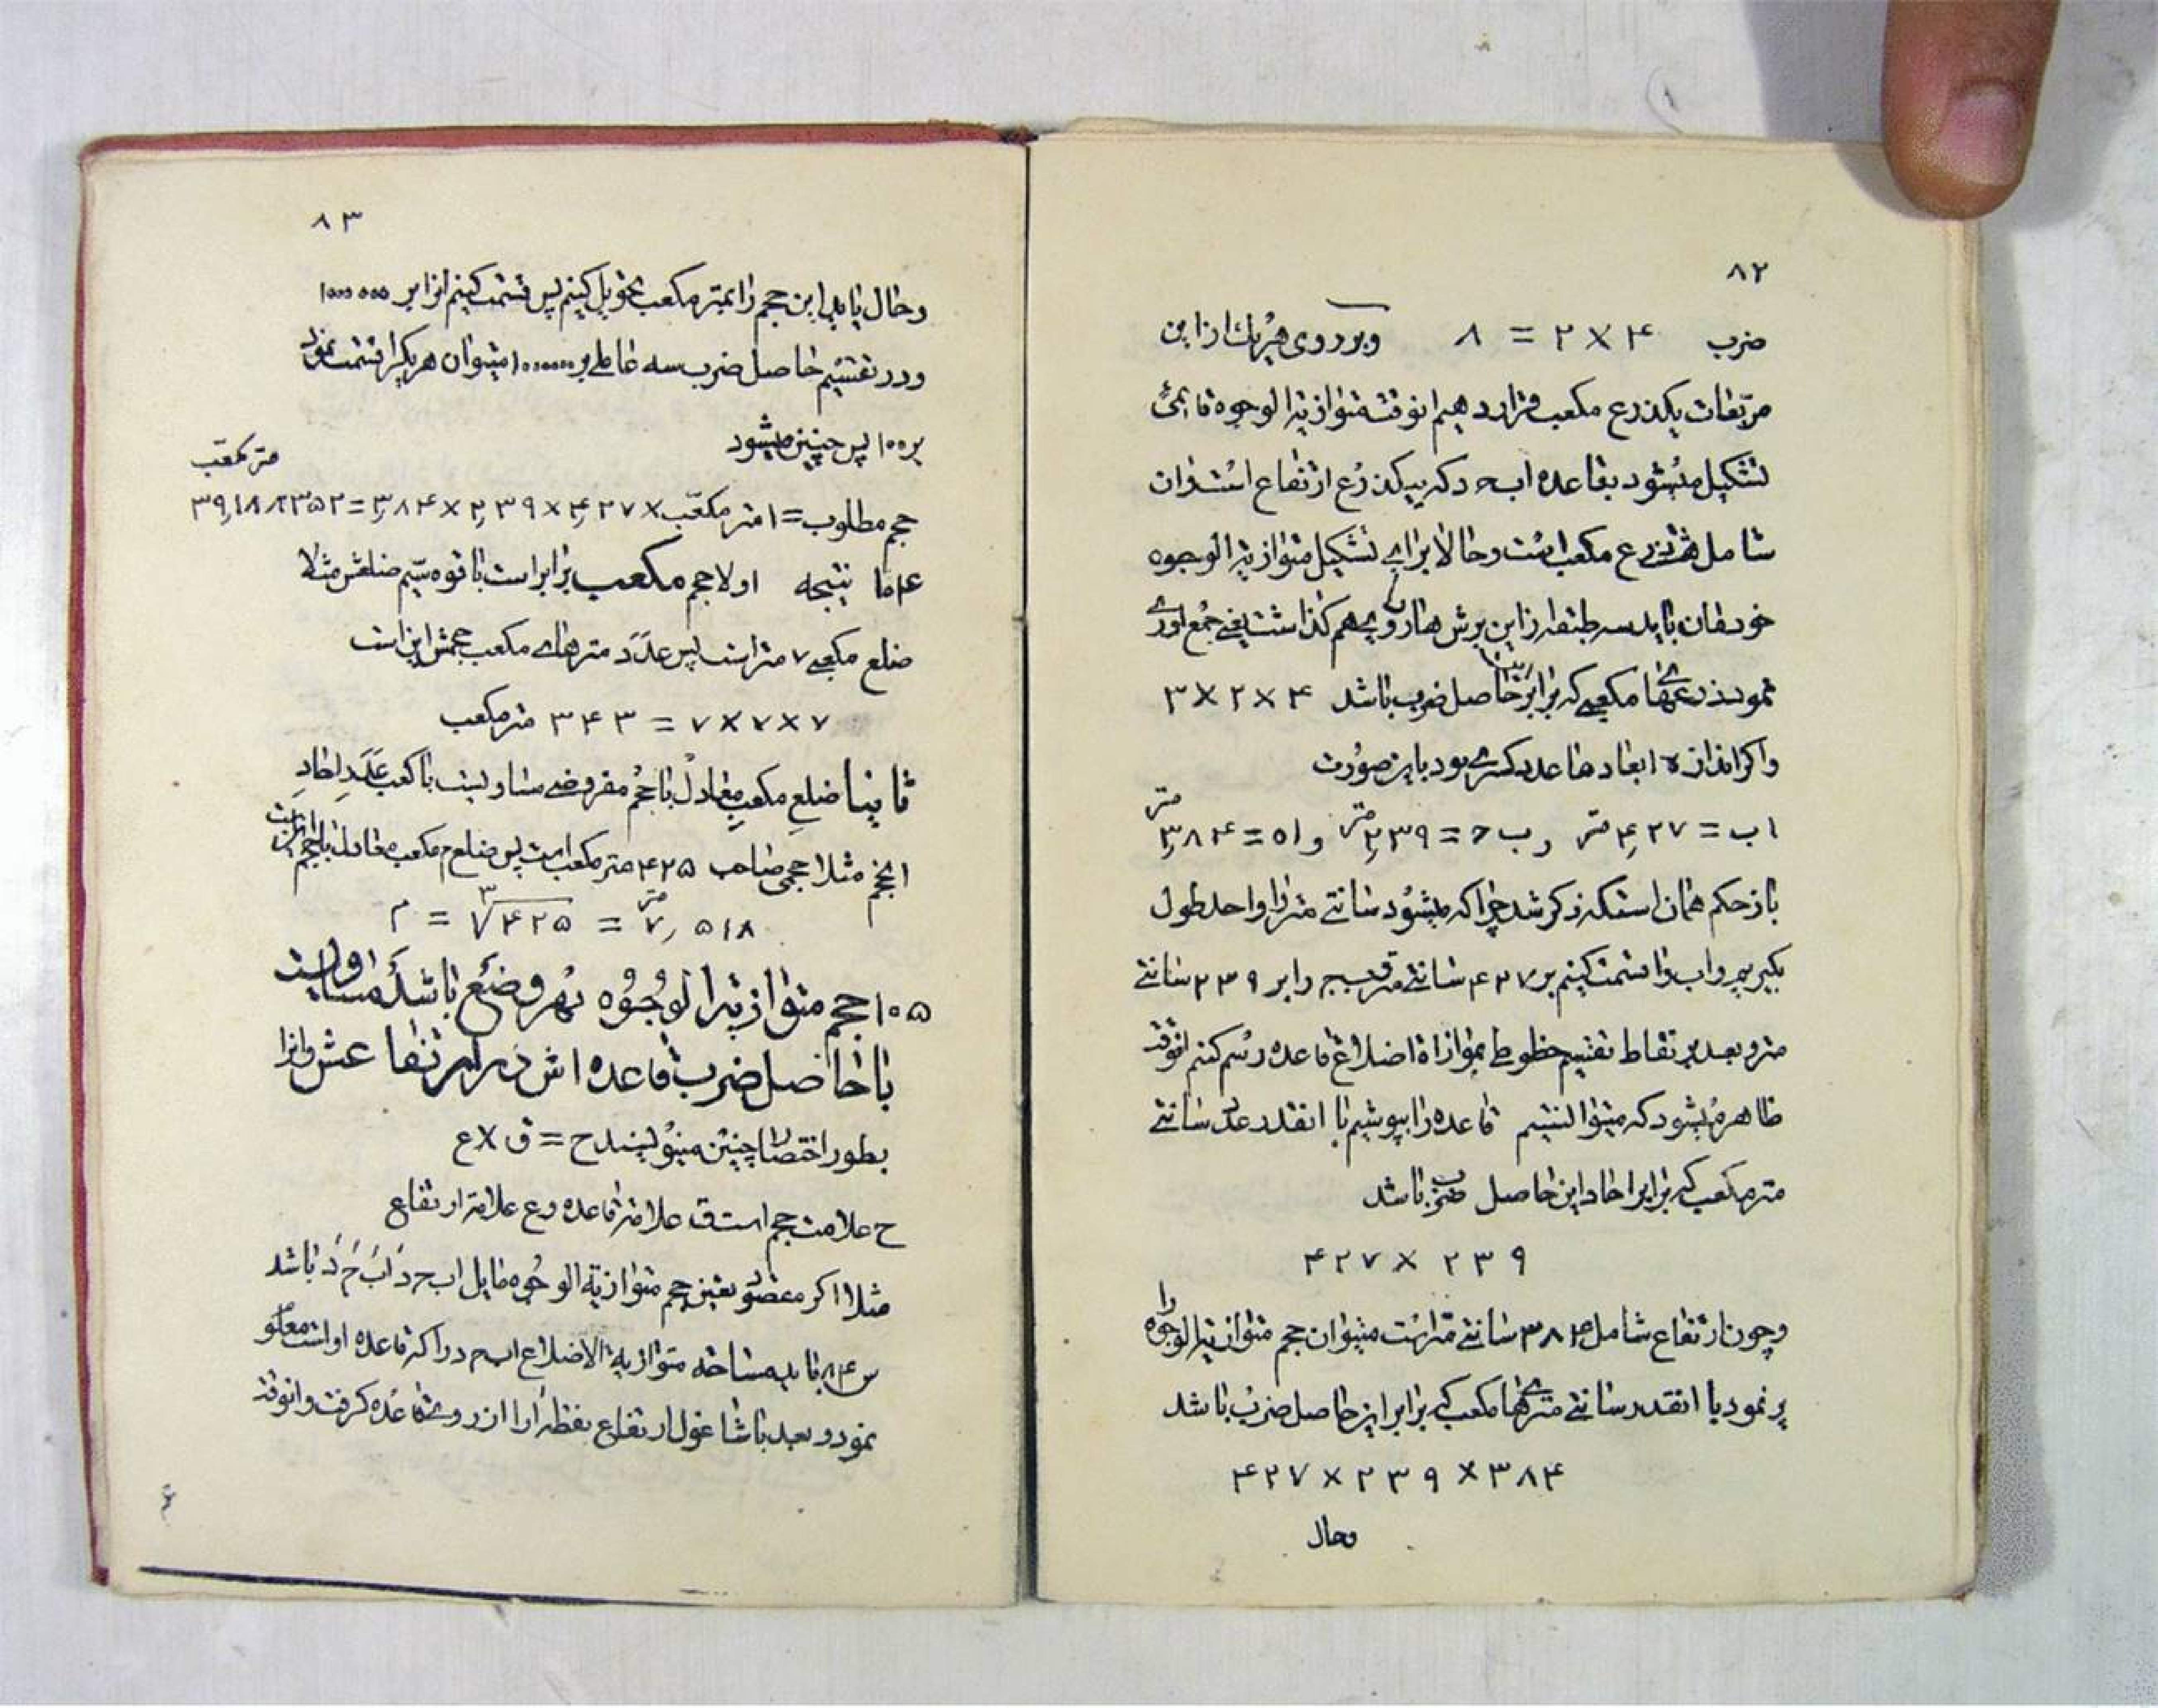 ۸۲
ضرب ۴ × ۲ = ۸ و بر روی هر یك ازاین
مربّعات یکذرع مکعب قرار دهیم انوقت متوازیة الوجوه قائمی
تشکیل میشود بقاعده اب‌ح‌د که بیکذرع ارتفاع است وان
شامل هشت ذرع مکعب است و حالا برای تشکیل متوازیة الوجوه
خودمان باید سه طبقه ازاین برش ها روی هم کذاشت یعنی جمع اوری
نمود ذرعهای مکعبی که برابر این حاصل ضرب باشد ۴ × ۲ × ۳
واکر اندازه ابعادها عدد کسری بود باین صورت
اب = ۴٫۲۷ متر و ب ح = ۲٫۳۹ متر و ا ه = ۳٫۸۴ متر
باز حکم همان استکه ذکر شد چرا که میشود سانتی متر را واحد طول
بکیریم و اب را قسمت کنیم بر ۴۲۷ سانتی متر و ب ح را بر ۲۳۹ سانتی
متر و بعد بر نقاط تقسیم خطوط بموازاة اضلاع قاعده رسم کنیم انوقت
ظاهر میشود که میتوانستیم قاعده را بپوشیم با انقدر عدد سانتی
متر مکعب که برابر احاد این حاصل ضرب باشد
۴۲۷ × ۲۳۹
و چون ارتفاع شامل ۳۸۴ سانتی متر است میتوان حجم متوازیة الوجوه را
پر نمود با انقدر سانتی مترهای مکعب که برابر این حاصل ضرب باشد
۴۲۷ × ۲۳۹ × ۳۸۴
وحال
۸۳
وحال باید این حجم را بمتر مکعب تحویل کنیم پس قسمت کنیم انرا بر ۱۰۰۰۰۰۰
و در تقسیم حاصل ضرب سه عاملی بر ۱۰۰۰۰۰۰ میتوان هر یکرا قسمت نمود
بر ۱۰۰ پس چنین میشود
حجم مطلوب = ۱ متر مکعّب × ۴٫۲۷ × ۲٫۳۹ × ۳٫۸۴ = ۳۹٫۱۸۸۳۵۲ متر مکعّب
۱۰۴ نتیجه اولا حجم مکعب برابر است با قوه سیّم ضلعش مثلا
ضلع مکعبی ۷ متر است پس عدد مترهای مکعب حجمش این است
۷ × ۷ × ۷ = ۳۴۳ متر مکعب
ثانیا ضلع مکعب معادل با حجم مفروضی مساویست با کعب عدد احاد
انحجم مثلا حجمی صاحب ۴۲۵ متر مکعب است پس ضلع م مکعب معادل با انحجم اینست
م = ∛۴۲۵ = ۷٫۵۱۸ متر
۱۰۵ حجم متوازیة الوجوه بهر وضع باشد مساویست
با حاصل ضرب قاعده اش در ارتفاعش وانرا
بطور اختصار چنین مینویسند ح = ق × ع
ح علامت حجم است ق علامة قاعده و ع علامة ارتفاع
مثلا اکر مقصود تعیین حجم متوازیة الوجوه مایل اب‌ح‌د اَبَ‌حَ‌دَ باشد
س ۸۴ باید مساحة متوازیة الاضلاع اب‌ح‌د را که قاعده او است معلوم
نمود و بعد با شاغول ارتفاع نقطه اَ را از روی قاعده کرفت و انوقت